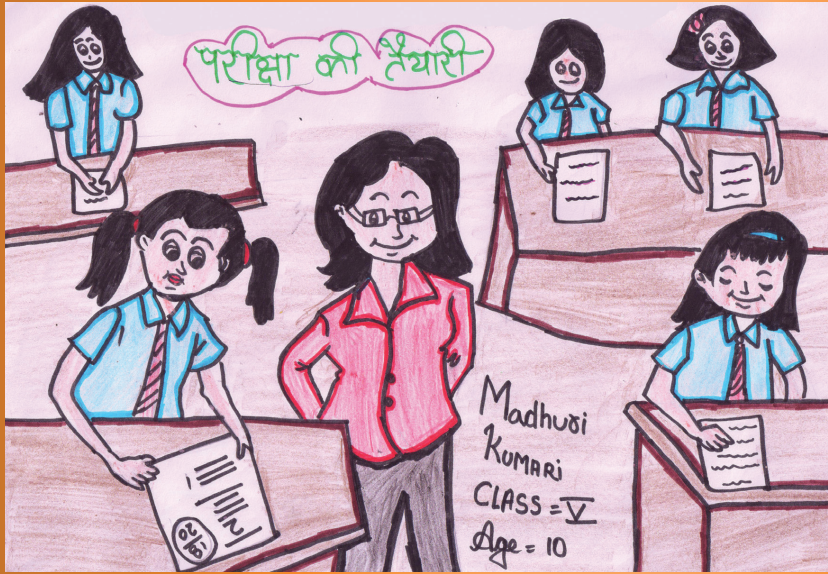 परीक्षा की तैयारी
Madhuri
KUMARi
CLASS = V
Age = 10